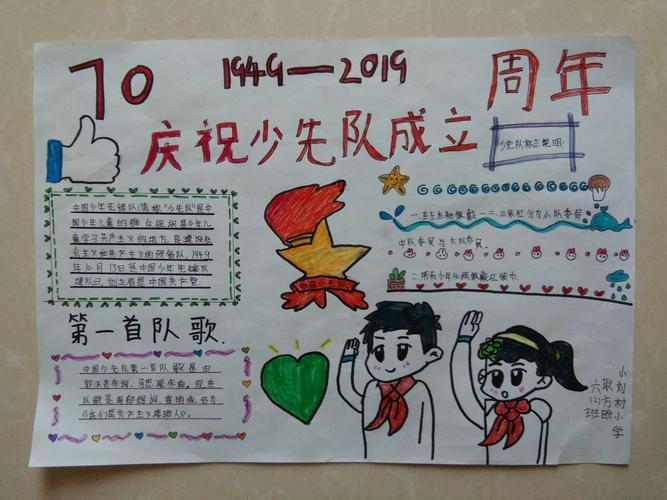 70 1949—2019 周年
庆祝少先队成立
少先队标志说明:
中国少年先锋队(简称"少先队")是中
国少年儿童的群众组织是少年儿
童学习共产主义的地方,是建设社
会主义和共产主义的预备队,1949
年10月13日是中国少年先锋队
建队日,创立者是中国共产党
中国少先队
一.在左衣袖佩戴一二、三条杠分为小队委员
中队委员与大队委员.
二.所有少年们应佩戴红领巾.
第一首队歌.
中国少先队第一首队歌是由
郭沫若作词,马思聪作曲,现在
队歌是周郁辉词,寄明曲,名为
《我们是共产主义接班人》.
小刘村小学
六(2)班